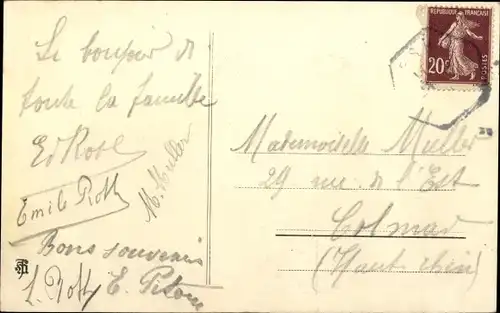 Le bonjour de
toute la famille
Ed Roth
M. Muller
Emile Roth
Bons souvenirs
L. Roth E.
REPUBLIQUE FRANÇAISE
20c
POSTES
Mademoiselle Muller
29 rue de l'Est
Colmar
(Haut-rhin)